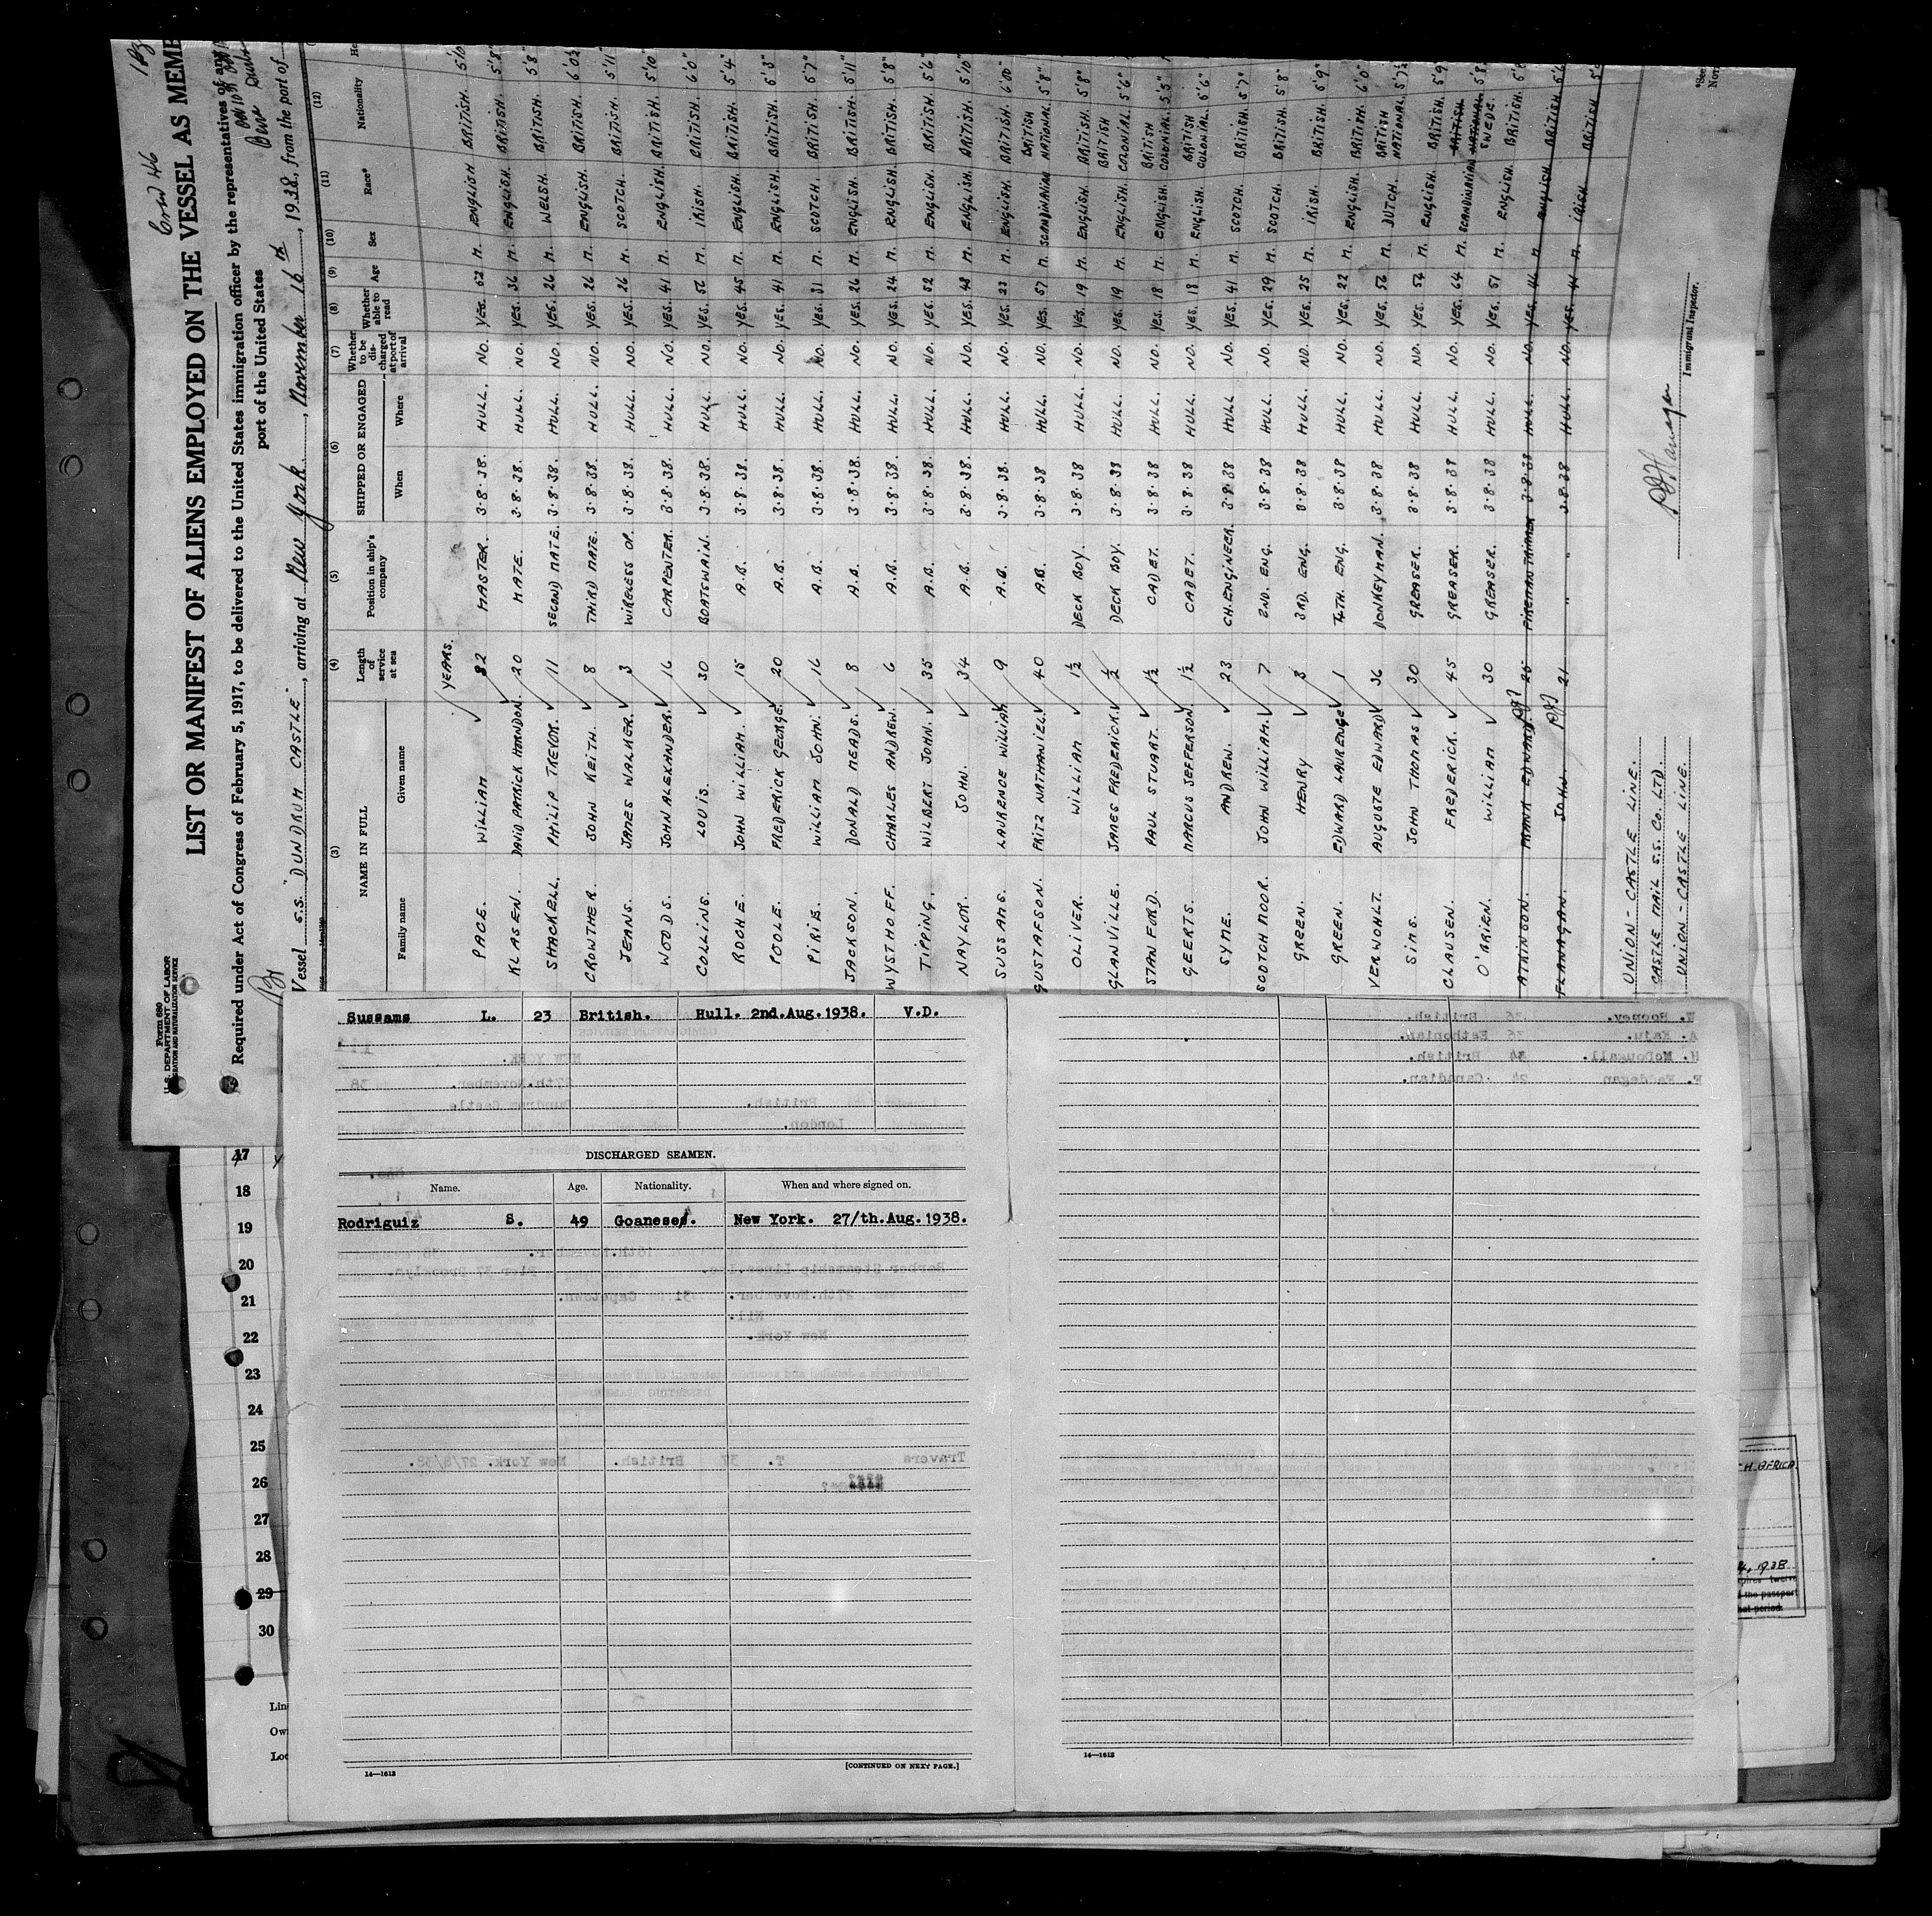 Form 680
U.S. DEPARTMENT OF LABOR
IMMIGRATION AND NATURALIZATION SERVICE
Crew 46
LIST OR MANIFEST OF ALIENS EMPLOYED ON THE VESSEL AS MEMB
Required under Act of Congress of February 5, 1917, to be delivered to the United States immigration officer by the representatives of any
port of the United States
Vessel S.S. "DUNDRUM CASTLE", arriving at New York, November 16th, 1938, from the port of
(3) (4) (5) (6) (7) (8) (9) (10) (11) (12)
NAME IN FULL
Family name Given name
Length of service at sea
Position in ship's company
SHIPPED OR ENGAGED
When Where
Whether to be discharged at port of arrival
Whether able to read
Age Sex Race* Nationality
YEARS.
PACE. WILLIAM 32 MASTER. 3.8.38. HULL. NO. YES. 52 M. ENGLISH BRITISH. 5'10
KLASEN. DAVID PATRICK HORNDON. 20 MATE. 3.8.38. HULL. NO. YES. 36 M. ENGLISH. BRITISH. 5'8"
SHACKELL. PHILIP TREVOR. 11 SECOND MATE. 3.8.38. HULL. NO. YES. 26 M. WELSH. BRITISH. 5'8"
CROWTHER. JOHN KEITH. 8 THIRD MATE. 3.8.38. HULL. NO. YES. 26 M. ENGLISH. BRITISH. 6'0½
JEANS. JAMES WALKER. 3 WIRELESS OP. 3.8.38. HULL. NO. YES. 26 M. SCOTCH. BRITISH. 5'11"
WOODS. JOHN ALEXANDER. 16 CARPENTER. 3.8.38. HULL. NO. YES. 41 M. ENGLISH. BRITISH. 5'10"
COLLINS. LOUIS. 30 BOATSWAIN. 3.8.38. HULL. NO. YES. 56 M. IRISH. BRITISH. 6'0"
ROCHE. JOHN WILLIAM. 15 A.B. 3.8.38. HULL. NO. YES. 45 M. ENGLISH. BRITISH. 5'4"
POOLE. FREDERICK GEORGE. 20 A.B. 3.8.38. HULL. NO. YES. 41 M. ENGLISH. BRITISH. 6'3"
PIRIE. WILLIAM JOHN. 16 A.B. 3.8.38. HULL. NO. YES. 31 M. SCOTCH. BRITISH. 5'7"
JACKSON. DONALD MEADS. 8 A.B. 3.8.38. HULL. NO. YES. 26 M. ENGLISH. BRITISH. 5'11"
WYSTHOFF. CHARLES ANDREW. 6 A.B. 3.8.38. HULL. NO. YES. 24 M. ENGLISH. BRITISH. 5'8"
TIPPING. WILBERT JOHN. 35 A.B. 3.8.38. HULL. NO. YES. 52 M. ENGLISH. BRITISH. 5'6"
NAYLOR. JOHN. 34 A.B. 3.8.38. HULL. NO. YES. 48 M. ENGLISH. BRITISH. 5'10"
SUSSAMS. LAURENCE WILLIAM 9 A.B. 3.8.38. HULL. NO. YES. 23 M. ENGLISH. BRITISH. 6'00"
GUSTAFSON. FRITZ NATHANIEL. 40 A.B. 3.8.38 HULL. NO. YES. 57 M. SCANDINAVIAN BRITISH NATIONAL. 5'8"
OLIVER. WILLIAM 1½ DECK BOY. 3.8.38 HULL. NO. YES. 19 M. ENGLISH. BRITISH. 5'8"
GLANVILLE. JAMES FREDERICK. ½ DECK BOY. 3.8.38 HULL. NO. YES. 19 M. ENGLISH. BRITISH COLONIAL. 5'6"
STANFORD. PAUL STUART. 1½ CADET. 3.8.38 HULL. NO. YES. 18 M. ENGLISH. BRITISH COLONIAL. 5'5"
GEERTS. MARCUS JEFFERSON 1½ CADET. 3.8.38 HULL. NO. YES. 18 M. ENGLISH. BRITISH COLONIAL. 5'6"
SYME. ANDREW. 23 CH. ENGINEER. 3.8.38 HULL NO. YES. 41 M. SCOTCH. BRITISH. 5'7"
SCOTCHMOOR. JOHN WILLIAM. 7 2ND. ENG. 3.8.38 HULL. NO. YES. 29 M. SCOTCH. BRITISH. 5'8"
GREEN. HENRY 3 3RD. ENG. 3.8.38 HULL. NO. YES. 25 M. IRISH. BRITISH. 5'9"
GREEN. EDWARD LAURENCE 1 4TH. ENG. 3.8.38 HULL. NO. YES. 22 M. ENGLISH. BRITISH. 6'0"
VERWOHLT. AUGUSTE EDWARD 36 DONKEYMAN. 3.8.38 HULL. NO. YES. 56 M. DUTCH. BRITISH NATIONAL. 5'7½
SIMS. JOHN THOMAS 30 GREASER. 3.8.38 HULL. NO. YES. 54 M. ENGLISH. BRITISH. 5'9
CLAUSEN. FREDERICK. 45 GREASER. 3.8.38 HULL. NO. YES. 64 M. SCANDINAVIAN BRITISH NATIONAL SWEDE. 5'8
O'BRIEN. WILLIAM 30 GREASER. 3.8.38 HULL. NO. YES. 51 M. ENGLISH. BRITISH. 5'8
ATKINSON. FRANK EDWARD. 25 FIREMAN TRIMMER 3.8.38 HULL. NO. YES. 46 M ENGLISH BRITISH 5'6
FLANAGAN. JOHN. 21 " " 3.8.38 HULL. NO. YES. 41 M. IRISH. BRITISH 5'
UNION-CASTLE LINE.
CASTLE MAIL S.S. CO. LTD.
UNION-CASTLE LINE.
Immigrant Inspector.
Sussams L. 23 British. Hull. 2nd.Aug.1938. V.D.
DISCHARGED SEAMEN.
Name. Age. Nationality. When and where signed on.
Rodriguiz S. 49 Goanese. New York. 27/th.Aug.1938.
14—1613
[CONTINUED ON NEXT PAGE.]
14—1613
W. Rooney. 36 British.
A. Kaju. 36 Esthonian.
H. McDougall. 34 British.
F. Fadegan 24 Canadian.
Travers T. 37 British. New York. 27/8/38.
17
18
19
20
21
22
23
24
25
26
27
28
29
30
Lin
Ow
Loc
H. AFRICA.
1938